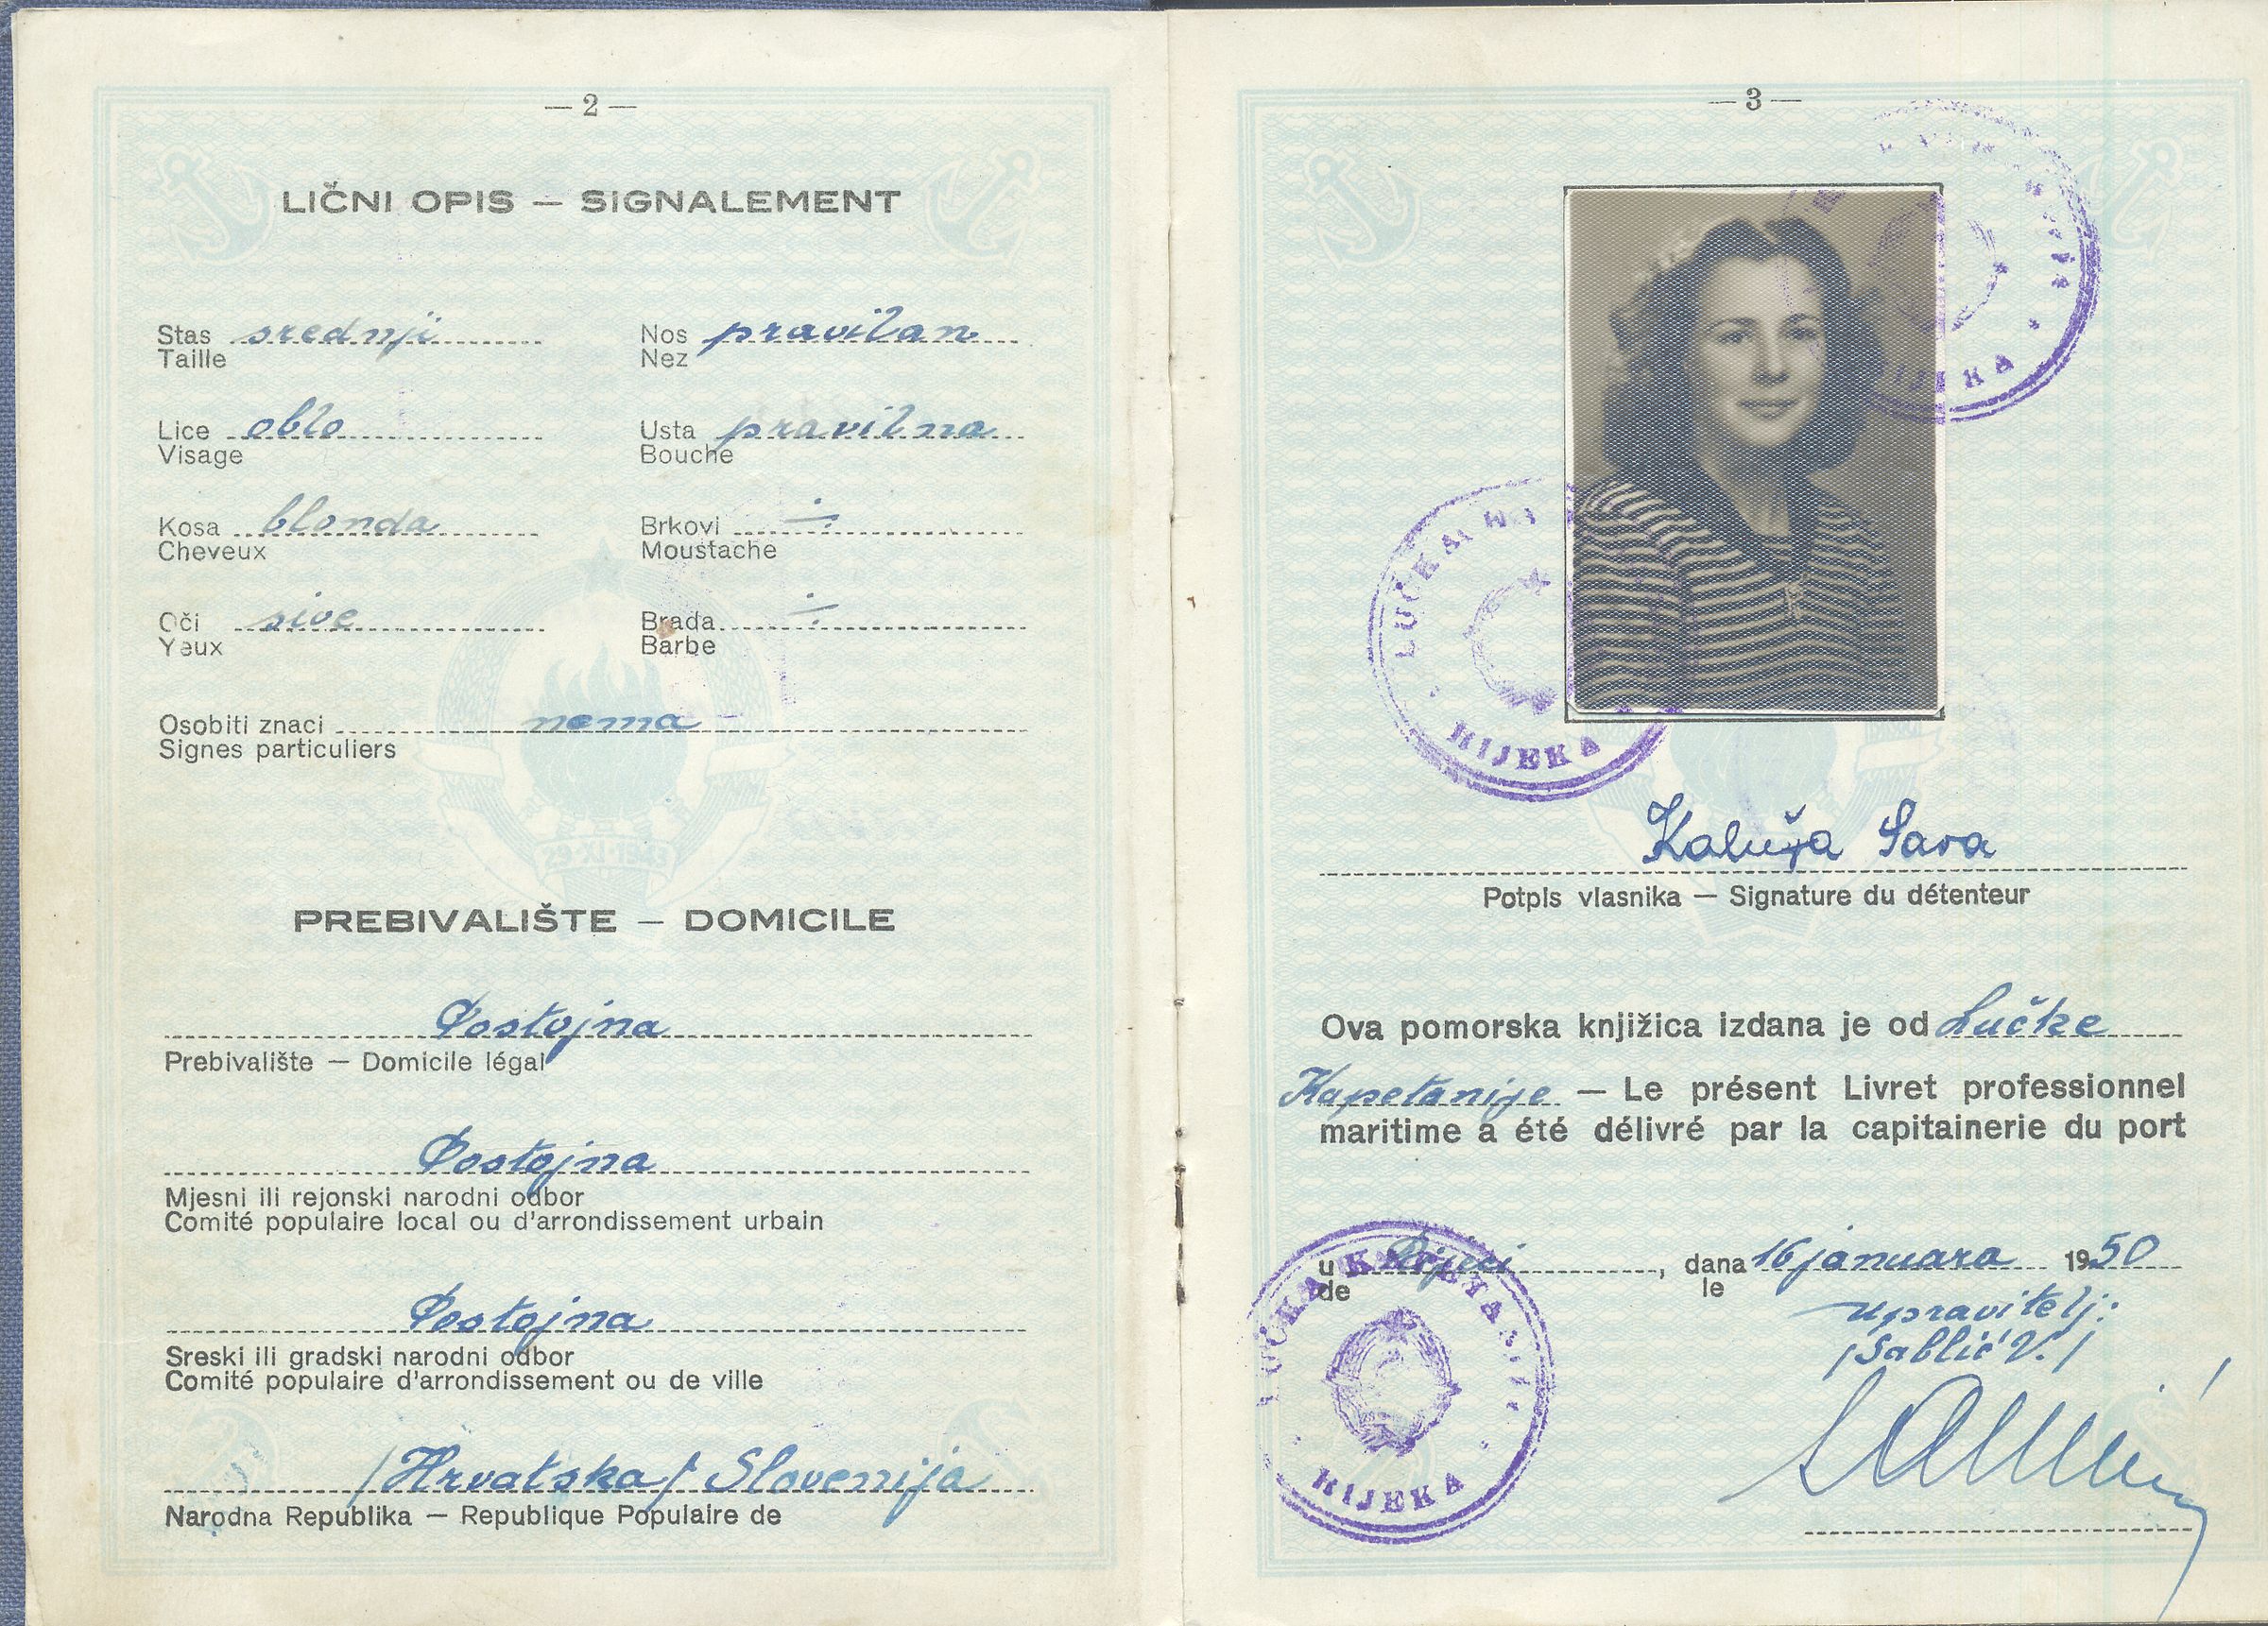 — 2 —
LIČNI OPIS — SIGNALEMENT
Stas srednji
Taille
Nos pravilan
Nez
Lice oblo
Visage
Usta pravilna
Bouche
Kosa blonda
Cheveux
Brkovi ÷
Moustache
Oči sive
Yeux
Brada ÷
Barbe
Osobiti znaci nema
Signes particuliers
29·XI·1943
PREBIVALIŠTE — DOMICILE
Postojna
Prebivalište — Domicile légal
Postojna
Mjesni ili rejonski narodni odbor
Comité populaire local ou d'arrondissement urbain
Postojna
Sreski ili gradski narodni odbor
Comité populaire d'arrondissement ou de ville
/Hrvatska/ Slovenija
Narodna Republika — Republique Populaire de
— 3 —
RIJEKA
LUČKA
RIJEKA
Kaluža Sava
Potpis vlasnika — Signature du détenteur
Ova pomorska knjižica izdana je od Lučke
Kapetanije — Le présent Livret professionnel
maritime a été délivré par la capitainerie du port
u Rijeci, dana 16 januara 1950
de le
upravitelj:
/Sablić V./
LUČKA KAPETANIJA
RIJEKA